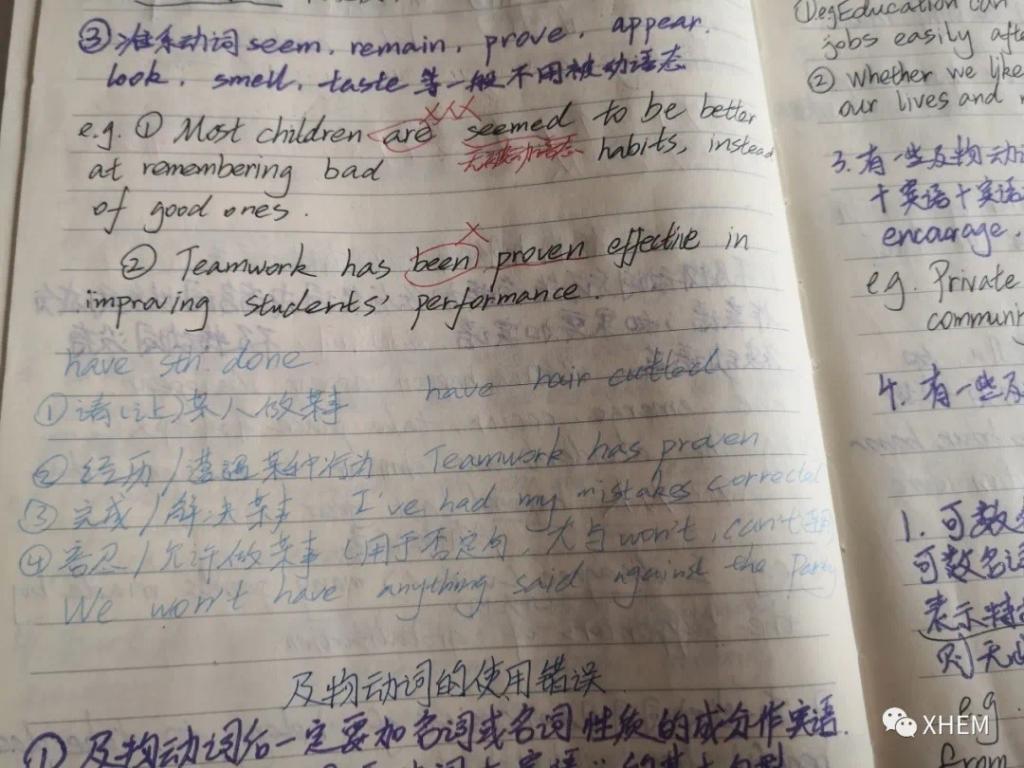 ③ 准系动词 seem, remain, prove, appear,
look, smell, taste 等一般不用被动语态
e.g. ① Most children are seemed to be better
at remembering bad 无被动语态 habits, instead
of good ones.
② Teamwork has been proven effective in
improving students' performance.
have sth. done
① 请(让)某人做某事 have hair cutted
② 经历/遭遇某种行为 Teamwork has proven
③ 完成/解决某事 I've had my mistakes corrected
④ 容忍/允许做某事 (用于否定句, 尤与won't, can't
We won't have anything said against the Party
及物动词的使用错误
① 及物动词后一定要加名词或名词性质的成分作宾语.
Education can
jobs easily
② Whether we like
our lives and
3. 有一些及物动词
+宾语+宾语
encourage,
e.g. Private
4. 有一些及
1. 可数
可数名词
表示特
则无
e.g.
from
XHEM